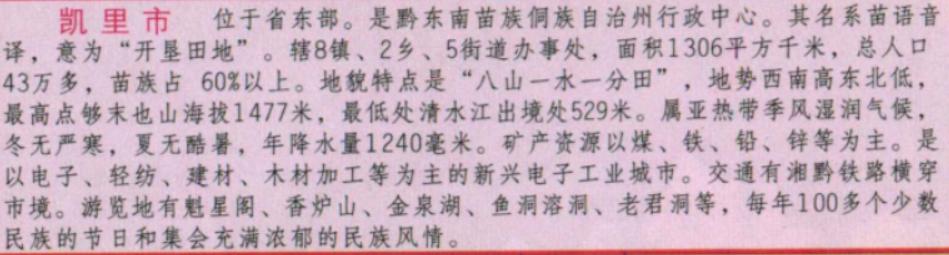 凯里市 位于省东部。是黔东南苗族侗族自治州行政中心。其名系苗语音
译，意为“开垦田地”。辖8镇、2乡、5街道办事处，面积1306平方千米，总人口
43万多，苗族占 60%以上。地貌特点是“八山一水一分田”，地势西南高东北低，
最高点够末也山海拔1477米，最低处清水江出境处529米。属亚热带季风湿润气候，
冬无严寒，夏无酷暑，年降水量1240毫米。矿产资源以煤、铁、铅、锌等为主。是
以电子、轻纺、建材、木材加工等为主的新兴电子工业城市。交通有湘黔铁路横穿
市境。游览地有魁星阁、香炉山、金泉湖、鱼洞溶洞、老君洞等，每年100多个少数
民族的节日和集会充满浓郁的民族风情。